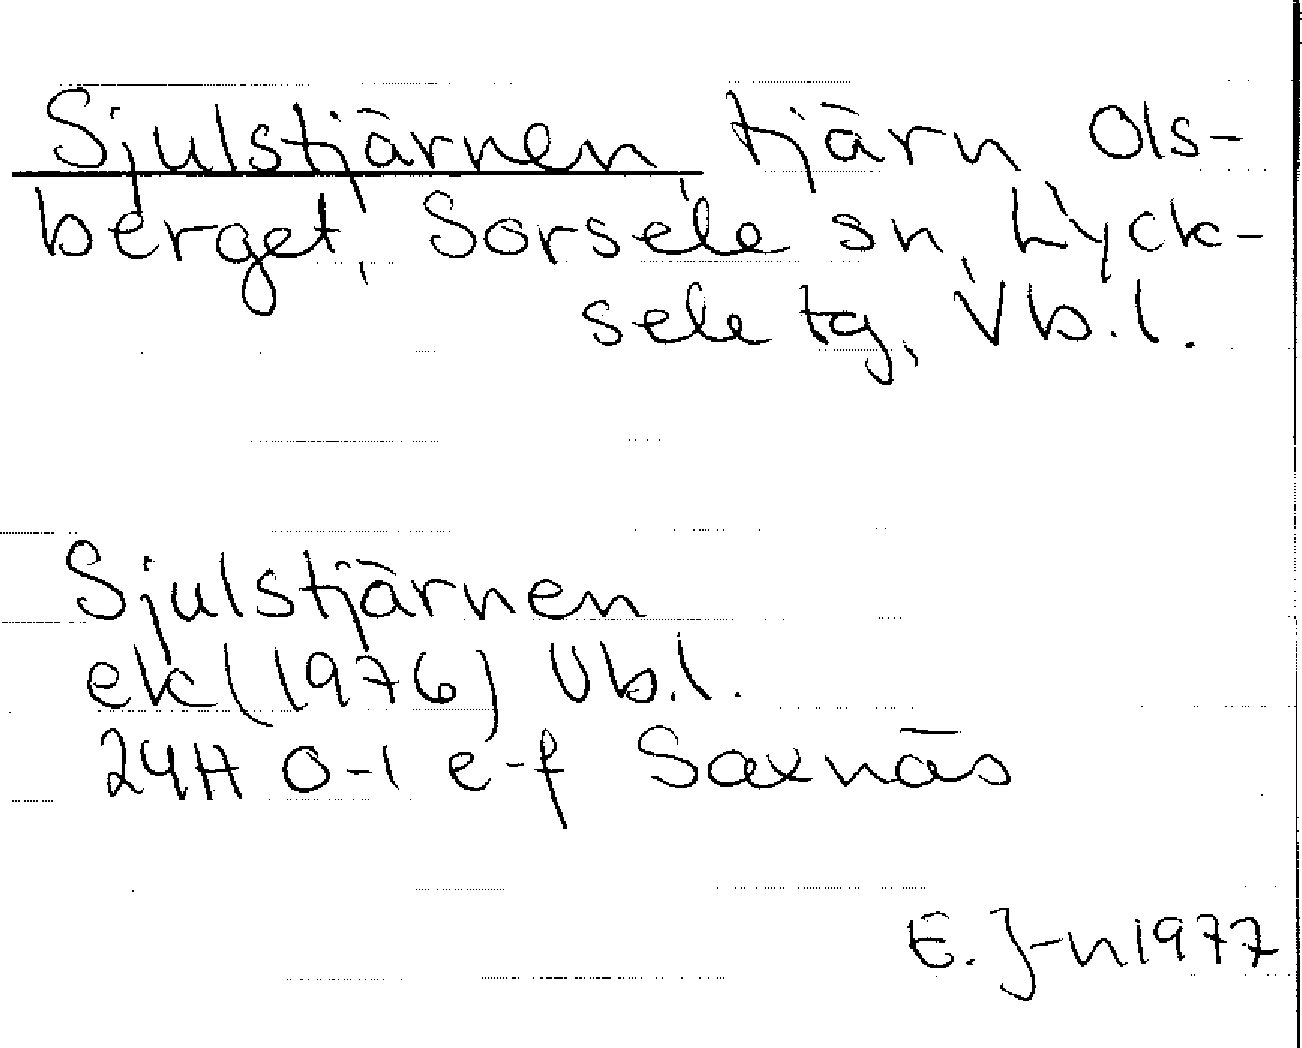 Sjulstjärnen tjärn Ols-
berget, Sorsele sn, Lyck-
sele tg, Vb.l.
Sjulstjärnen
ek (1976) Vb.l.
24H 0-1 e-f Saxnäs
E. J-n 1977